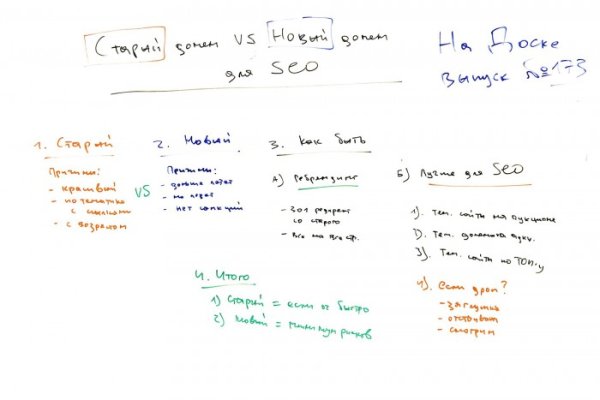 Старый домен VS Новый домен
для SEO
На Доске
выпуск №173
1. Старый
Причины:
- красивый
- по тематике
с ссылками
- с возрастом
VS
2. Новый
Причины:
- дольше
- не
- нет санкций
3. Как быть
А) Ребрендинг
- 301 редирект
со старого
- Все на все стр.
Б) Лучше для SEO
1). Тем. сайты на аукционе
2). Тем. домены
3). Тем. сайты по ТОП-у
4). Если дроп?
- заглушка
- отстоять
- смотрим
4. Итого
1) Старый = если быстро
2) Новый = минимум рисков